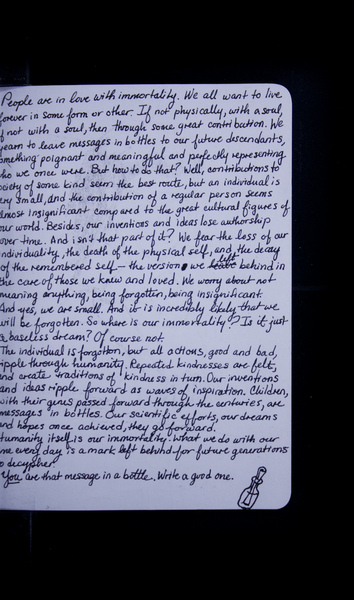 People are in love with immortality. We all want to live
forever in some form or other. If not physically, with a soul,
if not with a soul, then through some great contribution. We
yearn to leave messages in bottles to our future descendants,
something poignant and meaningful and perfectly representing
who we once were. But how to do that? Well, contributions to
society of some kind seem the best route, but an individual is
very small, and the contribution of a regular person seems
almost insignificant compared to the great cultural figures of
our world. Besides, our inventions and ideas lose authorship
over time. And isn't that part of it? We fear the loss of our
individuality, the death of the physical self, and, the decay
of the remembered self — the version we left behind in
the care of those we knew and loved. We worry about not
meaning anything, being forgotten, being insignificant.
And yes, we are small. And it is incredibly likely that we
will be forgotten. So where is our immortality? Is it just
a baseless dream? Of course not.
The individual is forgotten, but all actions, good and bad,
ripple through humanity. Repeated kindnesses are felt,
and create traditions of kindness in turn. Our inventions
and ideas ripple forward as waves of inspiration. Children,
with their genes passed forward through the centuries, are
messages in bottles. Our scientific efforts, our dreams
and hopes once achieved, they go forward.
Humanity itself is our immortality. What we do with our
time every day is a mark left behind for future generations
to decypher.
You are that message in a bottle. Write a good one.